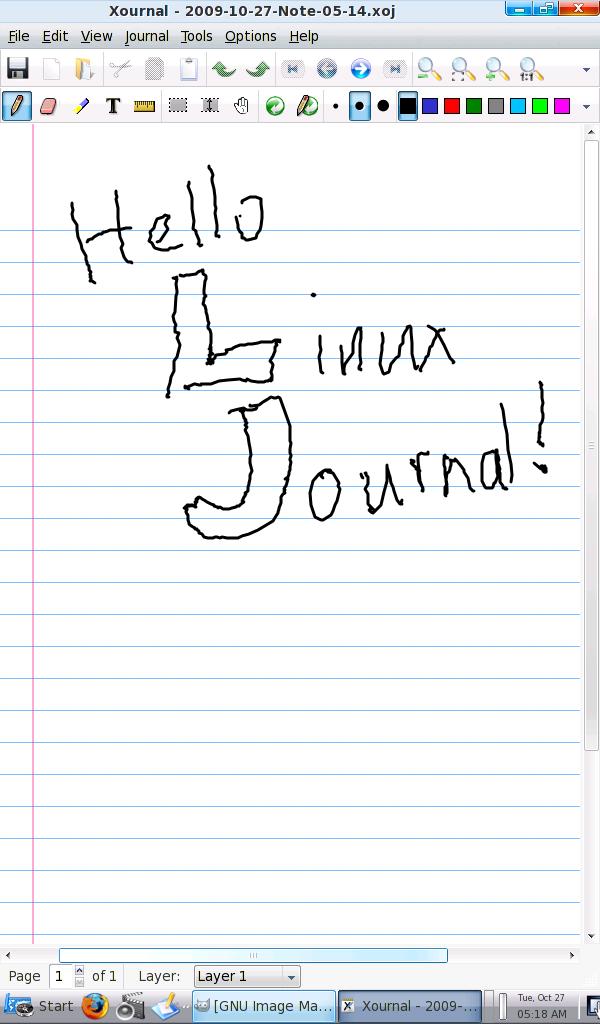 Xournal - 2009-10-27-Note-05-14.xoj
File Edit View Journal Tools Options Help
T 1:1
Hello
Linux
Journal!
Page 1 of 1 Layer: Layer 1
Start [GNU Image Ma... Xournal - 2009-... Tue, Oct 27
05:18 AM